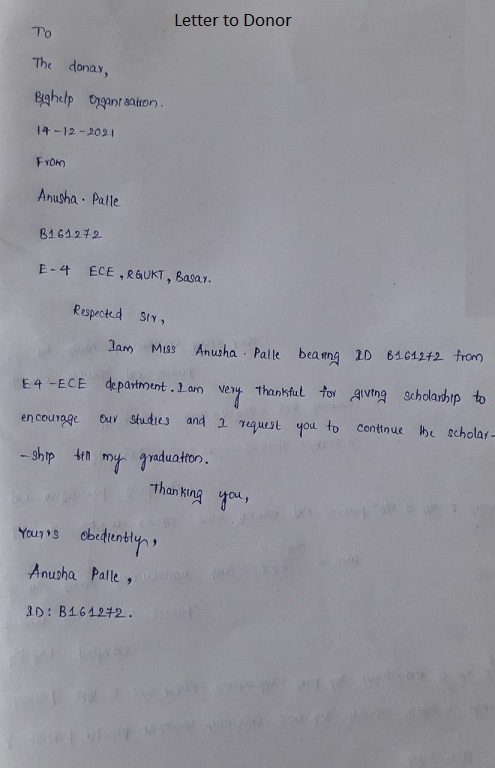 Letter to Donor
To
The donar,
Bighelp Organisation.
14-12-2021
From
Anusha. Palle
B161272
E-4 ECE, RGUKT, Basar.
Respected Sir,
Iam Miss Anusha. Palle bearing ID B161272 from
E4-ECE department. I am very thankful for giving scholarship to
encourage our studies and I request you to continue the scholar-
-ship till my graduation.
Thanking you,
Your's obediently,
Anusha Palle,
ID: B161272.